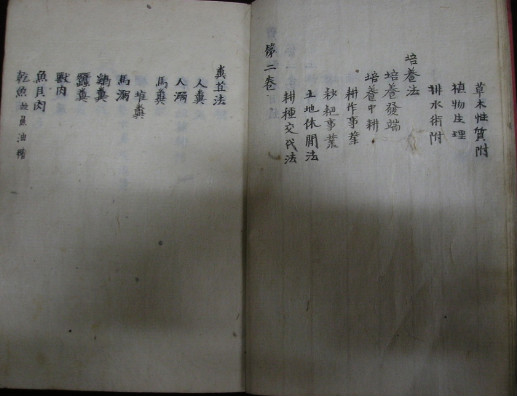 草木性質附
植物生理
排水術附
培養法
培養發端
培養中耕
耕作事業
耖耙事業
土地休閒法
耕種交代法
第二卷
糞苴法
人糞
人溺
馬糞
堆糞
馬溺
鷄糞
蠶糞
獸肉
魚貝肉
乾魚並魚油糟